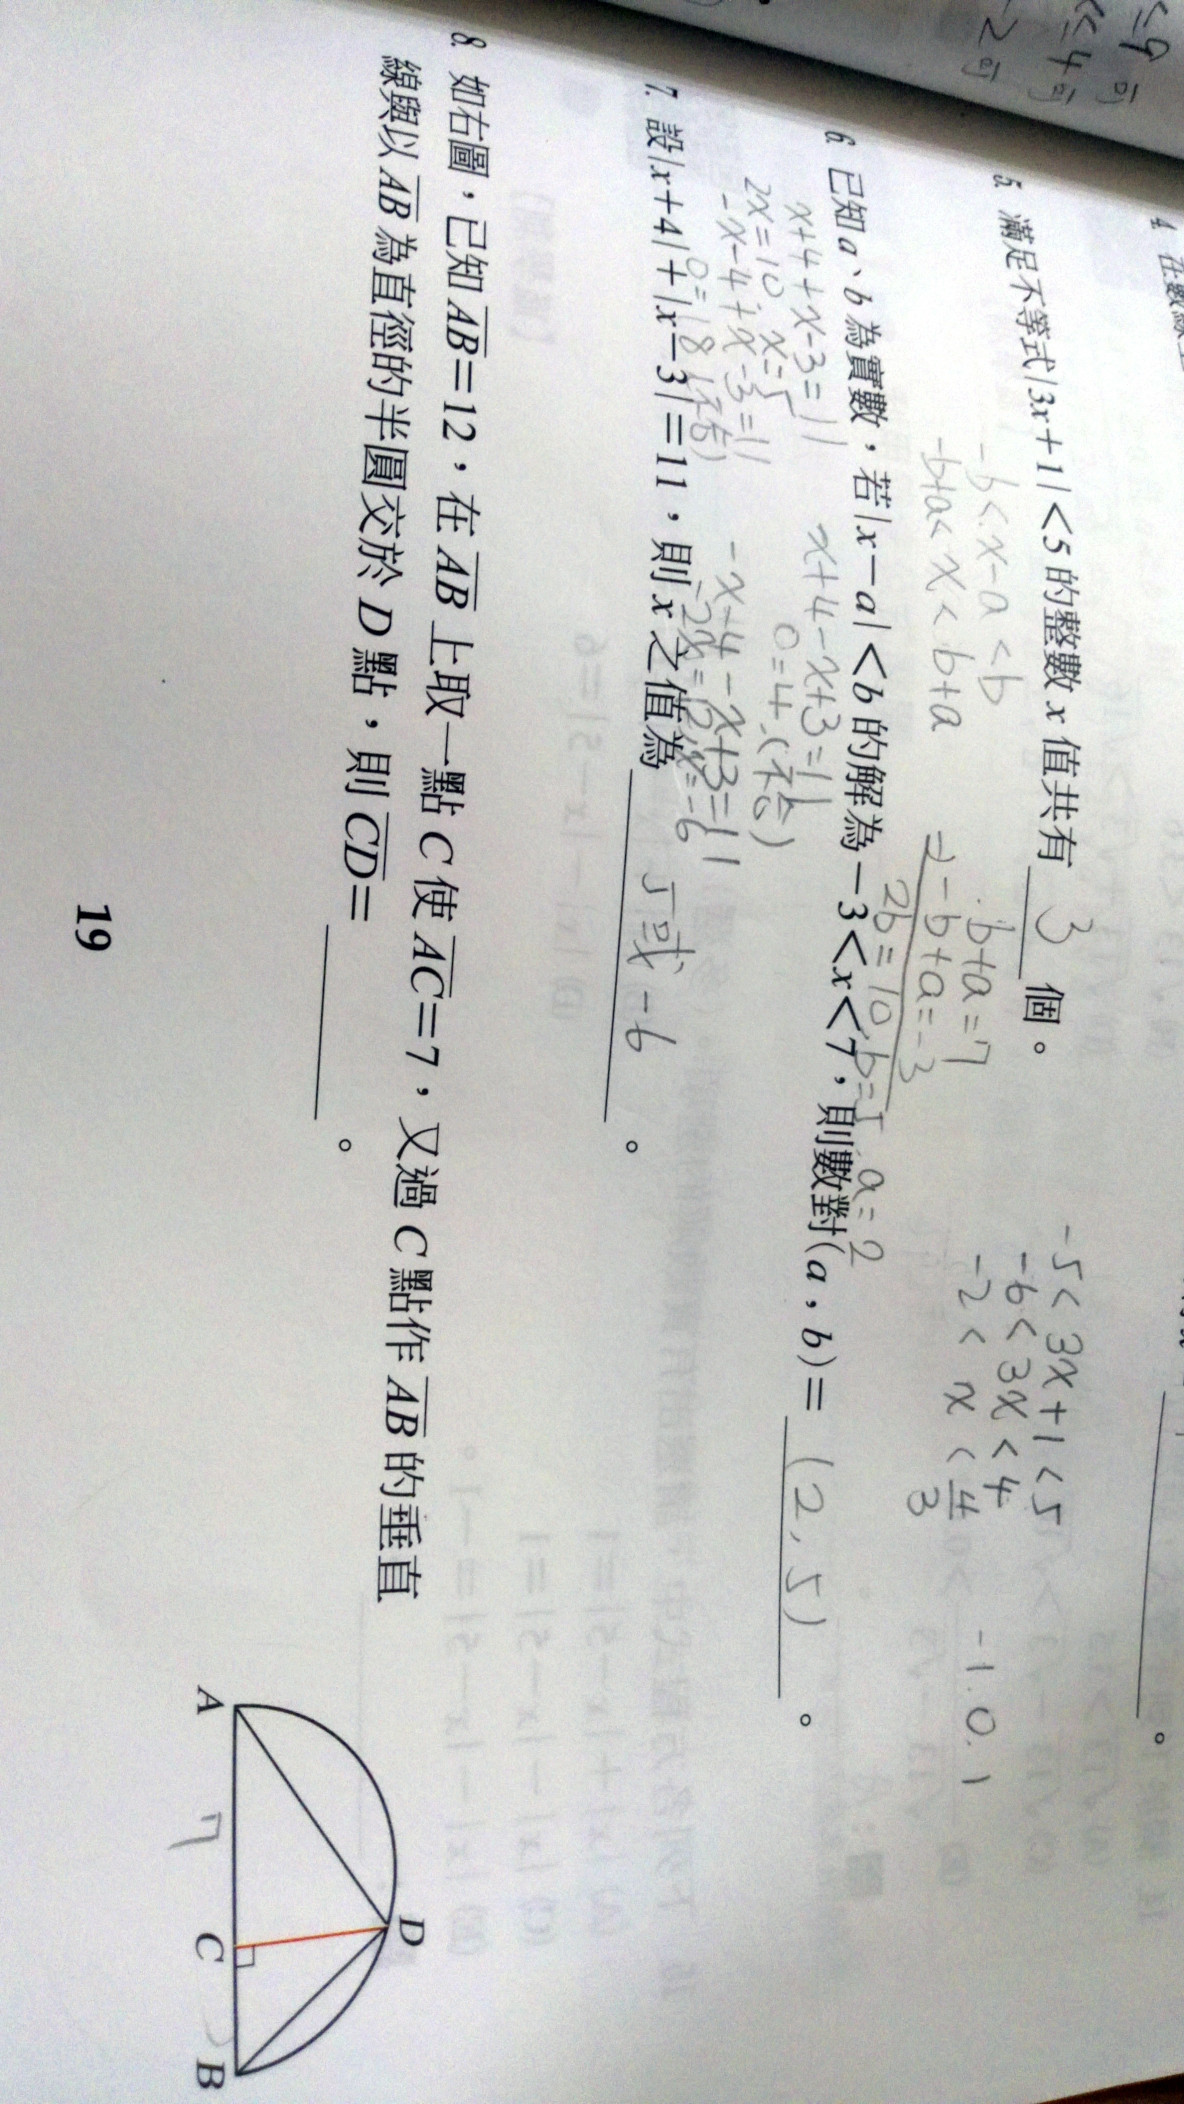 ≤9 可
≤4 可
-2可
4. 在數線
5. 滿足不等式|3x+1|<5的整數x值共有 3 個。
-5<3x+1<5
-6<3x<4
-2<x<4/3
-1.0.1
-b<x-a<b
-b+a<x<b+a
b+a=7
-)-b+a=-3
2b=10, b=5 a=2
6. 已知a、b為實數,若|x-a|<b的解為-3<x<7,則數對(a,b)= (2,5) 。
x+4+x-3=11
2x=10 x=5
-x-4+x-3=11
0=18(不合)
x+4-x+3=11
0=4.(不合)
-x+4-x+3=11
-2x=12 x=-6
7. 設|x+4|+|x-3|=11,則x之值為 5或-6 。
8. 如右圖,已知AB=12,在AB上取一點C使AC=7,又過C點作AB的垂直
線與以AB為直徑的半圓交於D點,則CD= 。
D
A 7 C B
19